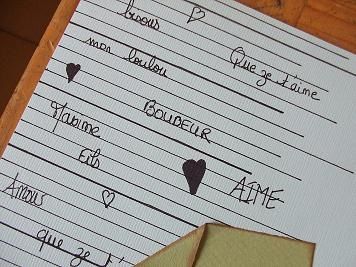 bisous
Que je t'aime
mon loulou
BOUDEUR
Maxime
Fils
AIME
Amour
que je t'